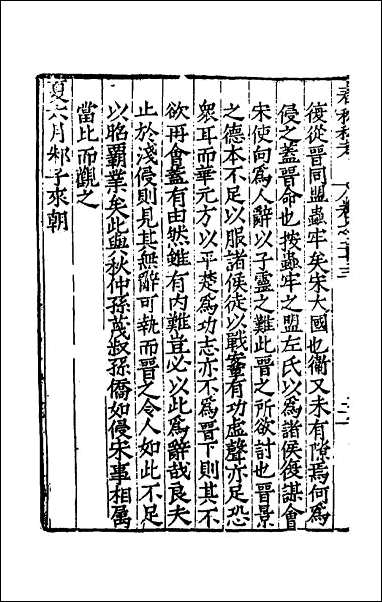 春秋私考　卷之二十三
復從晉同盟蟲牢矣宋大國也衞又未有隙焉何爲
侵之蓋晉命也按蟲牢之盟左氏以爲諸侯復謀會
宋使向爲人辭以子靈之難此晉之所欲討也晉景
之德本不足以服諸侯徒以戰鞌有功虛聲亦足恐
衆耳而華元方以平楚爲功志亦不爲晉下則其不
欲再會蓋有由然雖有內難豈必以此爲辭哉良夫
止於淺侵則見其無辭可執而晉之令人如此不足
以昭霸業矣此與秋仲孫蔑叔孫僑如侵宋事相屬
當比而觀之
夏六月邾子來朝